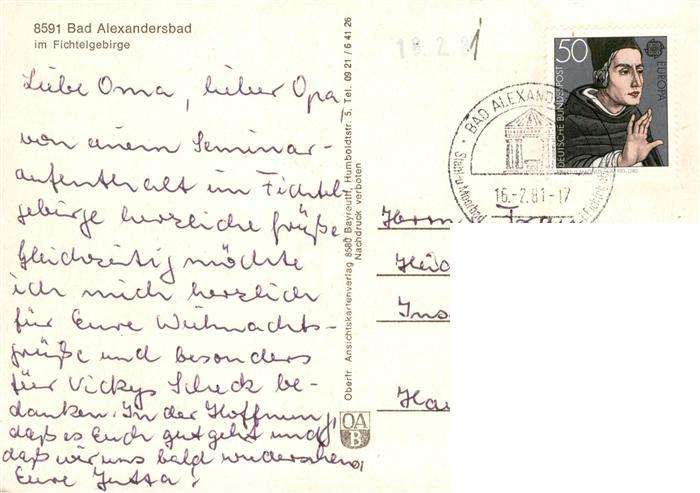 8591 Bad Alexandersbad
im Fichtelgebirge
Liebe Oma, lieber Opa,
von einem Seminar-
aufenthalt im Fichtel-
gebirge herzliche Grüße
Gleichzeitig möchte
ich mich herzlich
für Eure Weihnachts-
grüße und besonders
für Vickys Scheck be-
danken. In der Hoffnung,
daß es Euch gut geht und
daß wir uns bald wiedersehen,
Eure Jutta!
Oberfr. Ansichtskartenverlag 8580 Bayreuth, Humboldtstr. 5, Tel. 09 21 / 6 41 26
Nachdruck verboten
OA
B
18. 2. 81
50
DEUTSCHE BUNDESPOST
EUROPA
BAD ALEXAND
16.-2.81-17